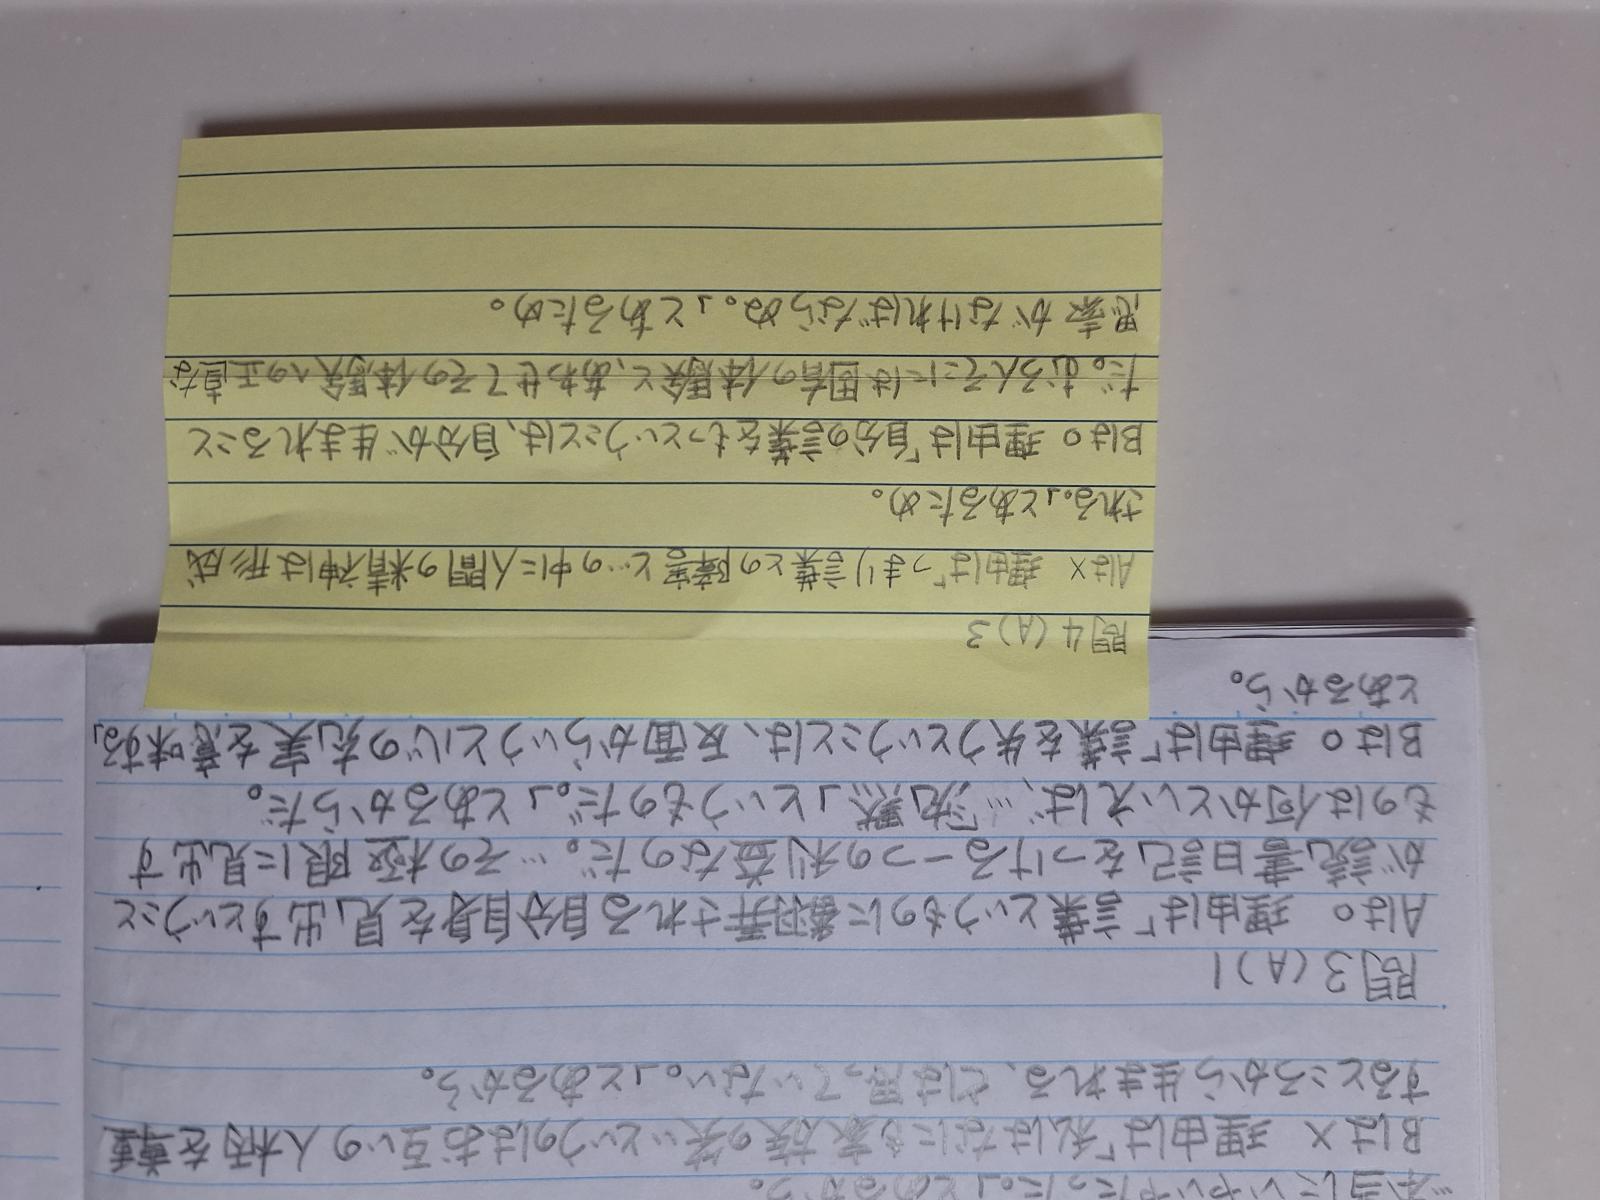 本当にいやいやだった。」とあるから。
Bは× 理由は「私はなにも家族の笑いというのはお互いの人柄を尊重
するところから生まれる、とは思っていない。」とあるから。
問3(A)1
Aは○ 理由は「言葉というものに翻弄される自分自身を見い出すということ
が読書日記をつける一つの利益なのだ。…その極限に見出す
ものは何かといえば、…『沈黙』というものだ。」とあるからだ。
Bは○ 理由は「言葉を失うということは、反面からいうと心の充実を意味する」
とあるから。
問4(A)3
Aは× 理由は「つまり言葉との障害と…の中に人間の精神は形成
される。」とあるため。
Bは○ 理由は「自分の言葉をもつということは、自分が生まれること
だ。むろんそこには固有の体験と、あわせてその体験への正直な
思索がなければならぬ。」とあるため。